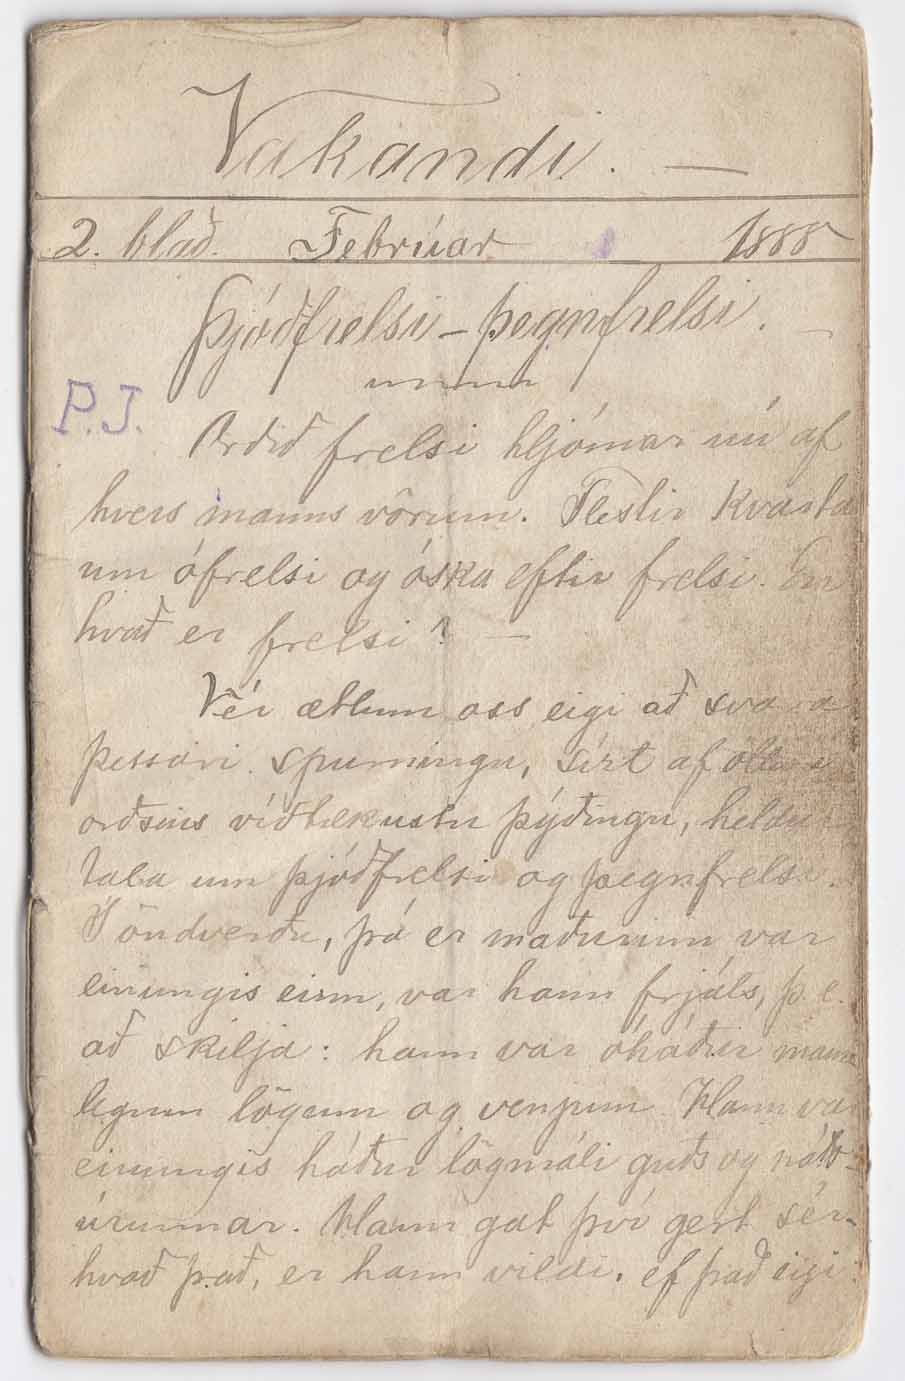 Vakandi. —
2. blað. Febrúar 1888
Þjóðfrelsi – þegnfrelsi. —
P.J.
Orðið frelsi hljómar nú af
hvers manns vörum. Flestir kvarta
um ófrelsi og óska eftir frelsi. En
hvað er frelsi? —
Vér ætlum oss eigi að svara
þessari spurningu, sízt af öllu í
orðsins víðtækustu þýðingu, heldur
tala um þjóðfrelsi og þegnfrelsi.
Í öndverðu, þá er maðurinn var
einungis einn, var hann frjáls, þ. e.
að skilja: hann var óháður mann
legum lögum og venjum. Hann var
einungis háður lögmáli guðs og nátt-
úrunnar. Hann gat því gert sér-
hvað það, er hann vildi, ef það eigi